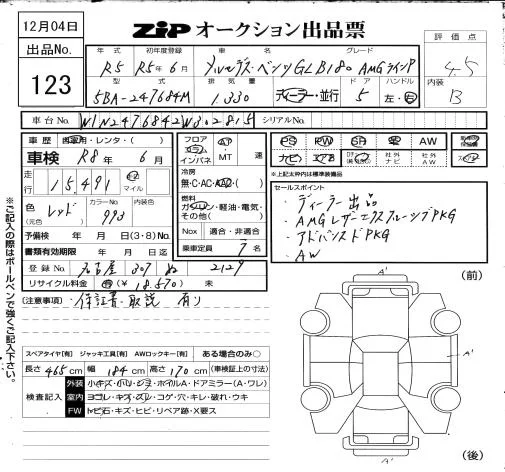 12月04日
ZIP オークション出品票
評価点 4.5
出品No. 123
年式 初年度登録 車名 グレード
R5 R5年6月 メルセデス・ベンツGLB180 AMGラインP
型式 排気量 ドア ハンドル
5BA-247684M 1,330 ディーラー・並行 5 左・右
内装 B
車台No. W1N2476842W302815 シリアルNo.
車歴 自家用・レンタ・( )
車検 R8年 6月
走行 15,491 km マイル
色(元色) レッド カラーNo. 993 内装色
予備検 年 月 日(3・8)No.
書類有効期限 年 月 日
登録No. 名古屋 307 ぬ 2129
リサイクル料金 (¥18,570) 未
フロア コラム インパネ AT MT 速
冷房 無・C・AC・AAC・( )
燃料 ガソリン・軽油・電気・その他( )
Nox 適合・非適合
乗車定員 7名
PS PW SR AW
ナビ エアB 社外ナビ 社外AW
※上記太枠内は標準装備品
セールスポイント
・ディーラー出品
・AMGレザーエクスクルーシブPKG
・アドバンスドPKG
・AW
(注意事項) 保証書・取説 有り
※ご記入の際はボールペンで強くご記入下さい。
スペアタイヤ[有] ジャッキ工具[有] AWロックキー[有] ある場合のみ○
長さ 465cm 幅 184cm 高さ 170cm (車検証上の寸法)
検査記入
外装 小キズ・小ヘコミ・ホイルA・ドアミラー(A・ワレ)
室内 ヨゴレ・キズ・スレ・コゲ・穴・キレ・破れ・ウキ
FW トビ石・キズ・ヒビ・リペア跡・X要ス
(前)
A'
A'
A'
(後)